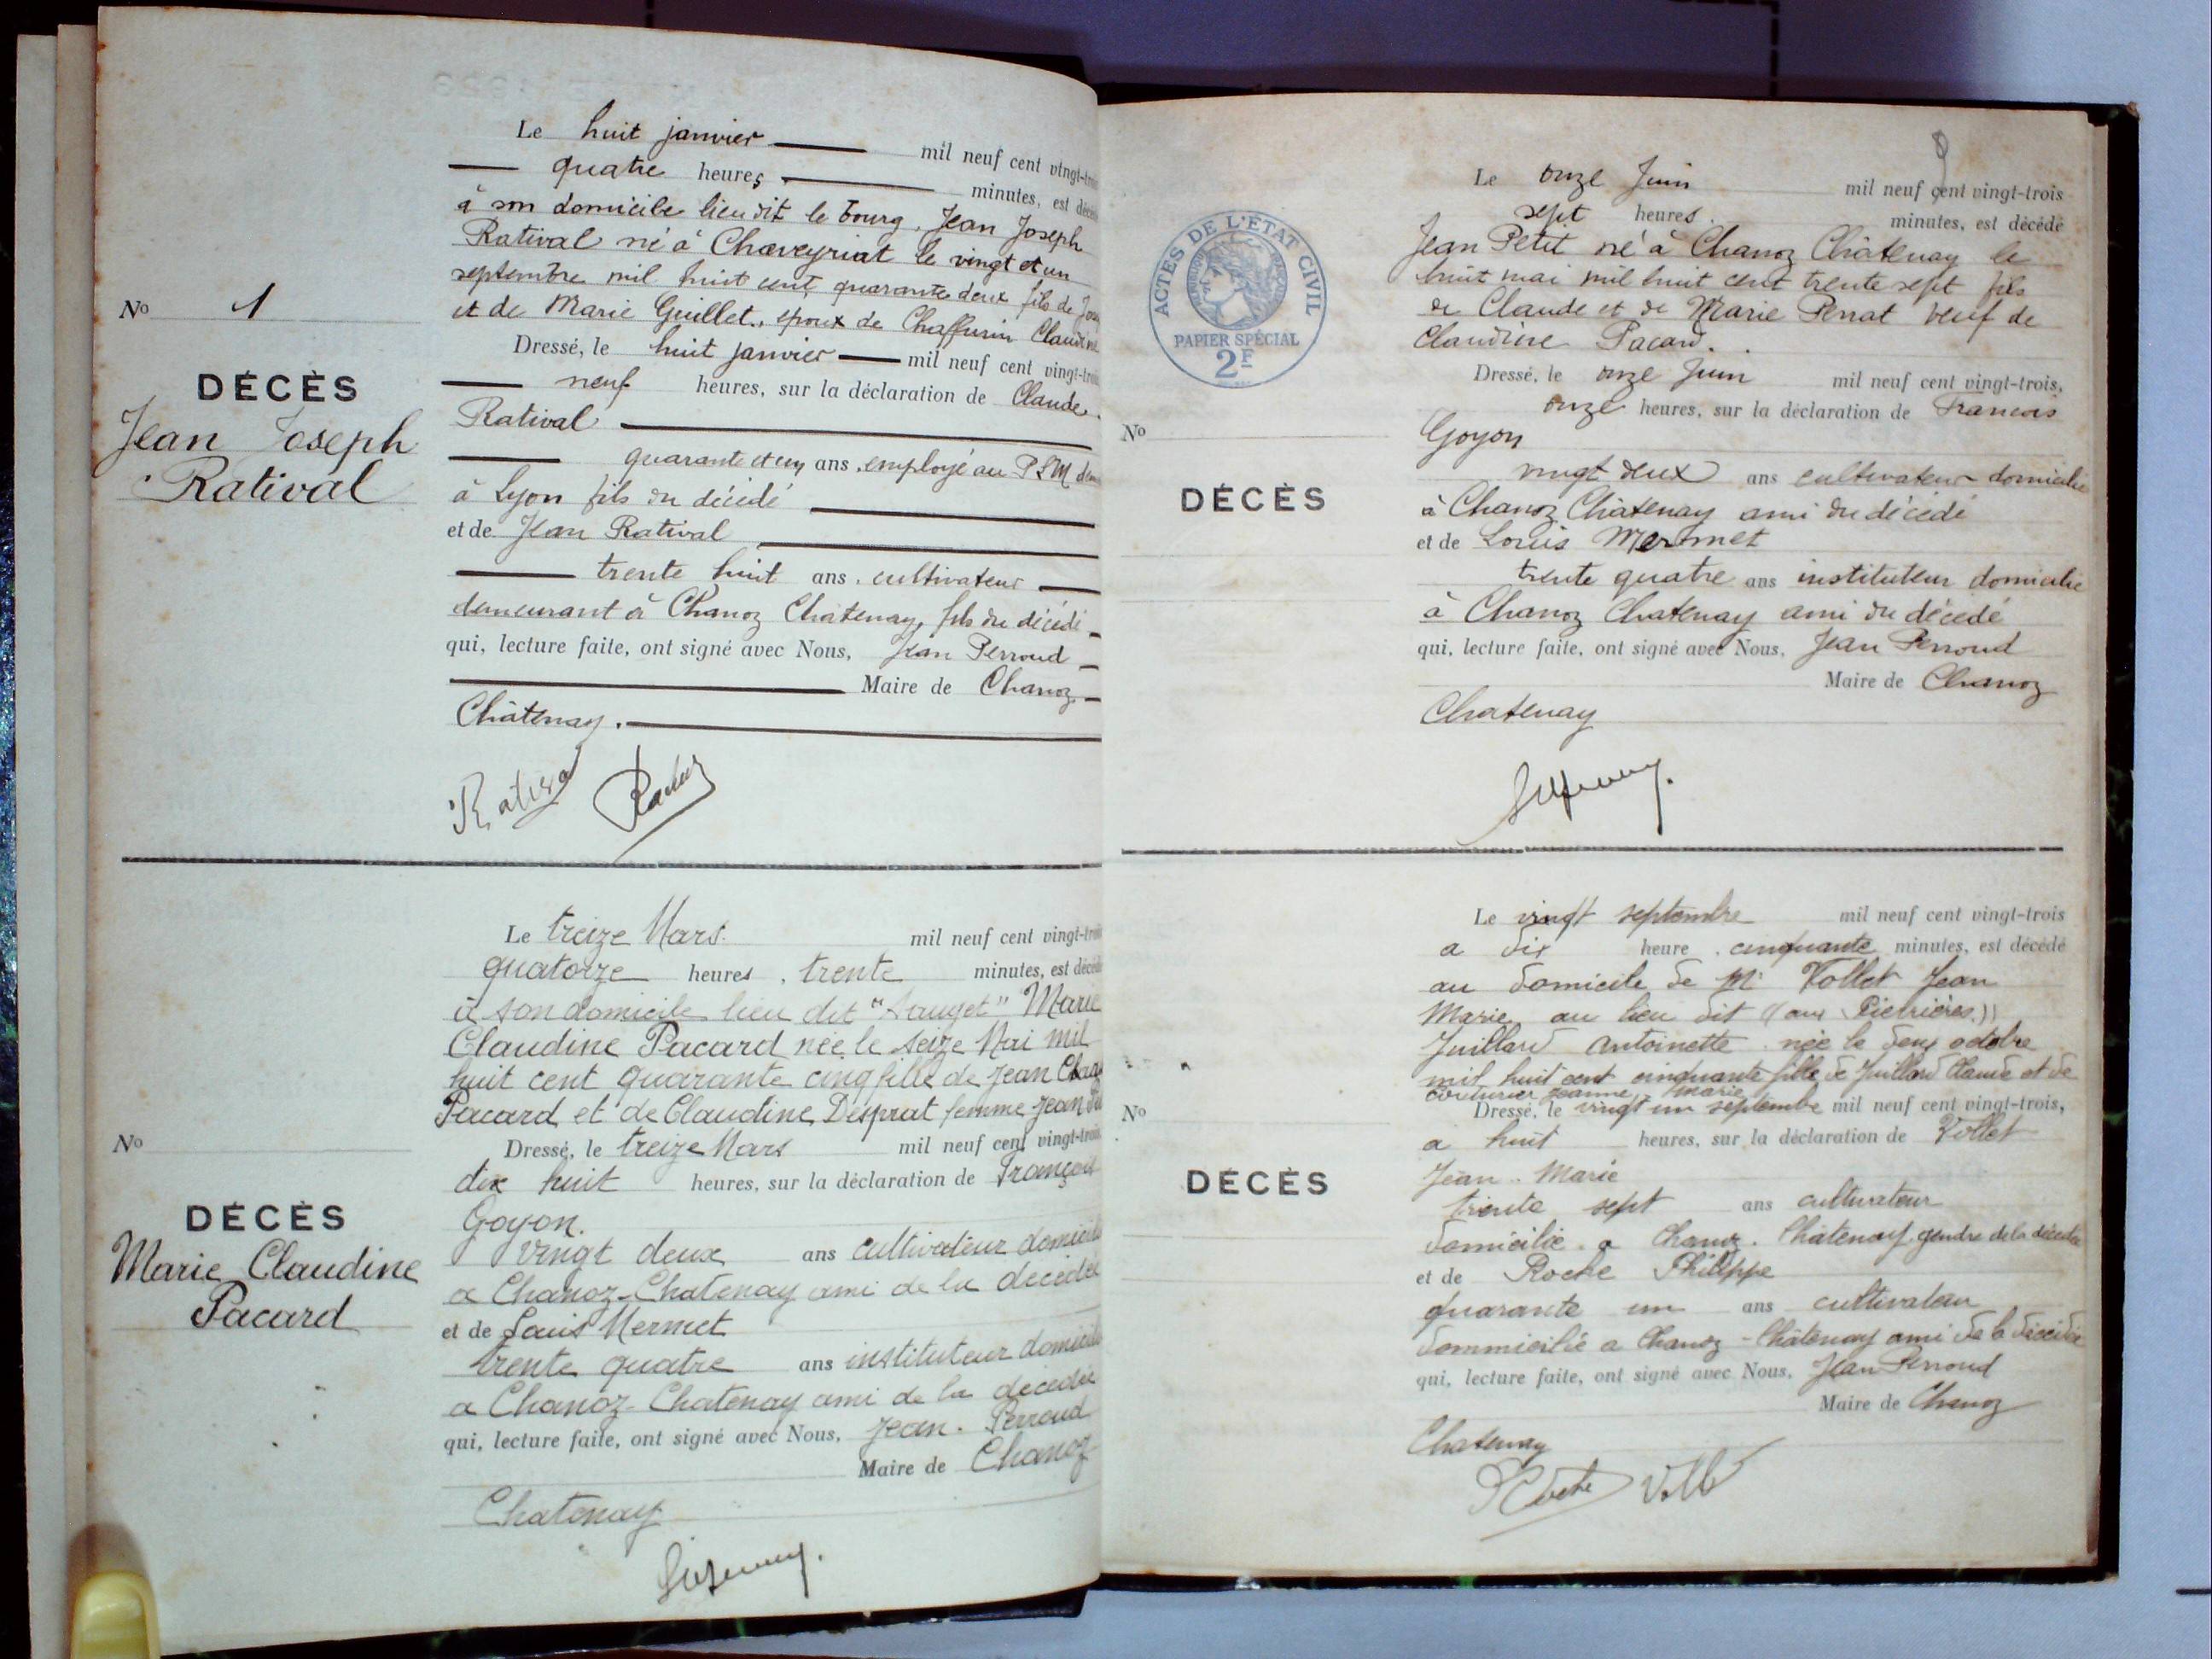 Le huit janvier mil neuf cent vingt-trois
quatre heures, minutes, est décédé
à son domicile lieu dit le bourg, Jean Joseph
Ratival né à Chaveyriat le vingt et un
septembre mil huit cent quarante deux fils de
et de Marie Guillet, époux de Chaffurin Claudine
Dressé, le huit janvier mil neuf cent vingt-trois
neuf heures, sur la déclaration de Claude
Ratival
quarante et un ans, employé au PLM
à Lyon fils du décédé
et de Jean Ratival
trente huit ans, cultivateur
demeurant à Chanoz Châtenay, fils du décédé
qui, lecture faite, ont signé avec Nous, Jean Perroud
Maire de Chanoz
Châtenay.
Ratival
No 1
DÉCÈS
Jean Joseph
Ratival
Le treize Mars mil neuf cent vingt-trois
quatorze heures, trente minutes, est décédé
à son domicile lieu dit Marie
Claudine Pacard née le seize Mai mil
huit cent quarante cinq fille de Jean
Pacard et de Claudine Desprat femme Jean
Dressé, le treize Mars mil neuf cent vingt-trois
dix huit heures, sur la déclaration de François
Goyon.
vingt deux ans cultivateur domicilié
a Chanoz-Chatenay ami de la décédée
et de Louis Mermet
trente quatre ans instituteur domicilié
a Chanoz-Chatenay ami de la décédée
qui, lecture faite, ont signé avec Nous, Jean. Perroud
Maire de Chanoz
Chatenay
No
DÉCÈS
Marie Claudine
Pacard
9
ACTES DE L'ÉTAT CIVIL
PAPIER SPÉCIAL
2F
Le onze Juin mil neuf cent vingt-trois
sept heures. minutes, est décédé
Jean Petit né à Chanoz Châtenay le
huit mai mil huit cent trente sept fils
de Claude et de Marie Perrat veuf de
Claudine Pacard.
Dressé, le onze Juin mil neuf cent vingt-trois,
onze heures, sur la déclaration de Francois
Goyon
vingt deux ans cultivateur domicilié
à Chanoz Châtenay ami du décédé
et de Louis Mermet
trente quatre ans instituteur domicilié
à Chanoz Chatenay ami du décédé
qui, lecture faite, ont signé avec Nous, Jean Perroud
Maire de Chanoz
Chatenay
No
DÉCÈS
Le vingt septembre mil neuf cent vingt-trois
a dix heure . cinquante minutes, est décédé
au domicile de Mr Vollet Jean
Marie, au lieu dit
Juillard Antoinette née le deux octobre
mil huit cent cinquante fille de Juillard Claude et de
Couturier Jeanne Marie
Dressé, le vingt un septembre mil neuf cent vingt-trois,
a huit heures, sur la déclaration de Vollet
Jean. Marie
trente sept ans cultivateur
domicilié a Chanoz. Châtenay gendre de la décédée
et de Roche Philippe
quarante un ans cultivateur
dommicilié a Chanoz-Châtenay ami de la décédée
qui, lecture faite, ont signé avec Nous, Jean Perroud
Maire de Chanoz
Chatenay
No
DÉCÈS